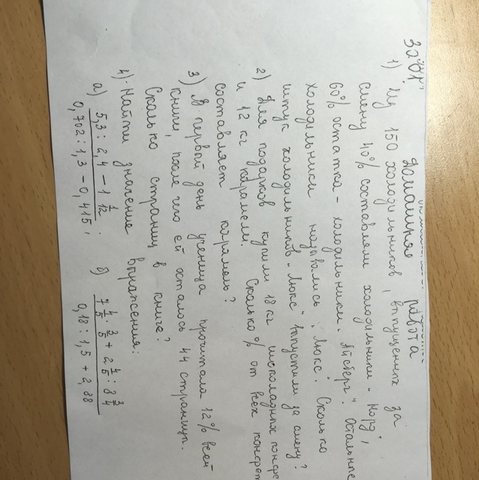 32.01.
Домашняя работа
1) Из 150 холодильников, выпущенных за
смену 40% составляли холодильники „Норд",
60% остатка - холодильники „Айсберг". Остальные
холодильники назывались „Люкс". Сколько
штук холодильников „Люкс" выпустили за смену?
2) Для подарков купили 18 кг шоколадных конфет
и 12 кг карамели. Сколько % от всех конфет
составляет карамель?
3) В первый день ученица прочитала 12% всей
книги, после чего ей осталось 44 страницы.
Сколько страниц в книге?
4) Найти значение выражения:
а) 5,3 : 2,4 - 1 1/12 : б) 7 4/5 · 3/5 + 2 4/5 : 3 3/4
0,702 : 1,3 - 0,415 ; 0,18 : 1,5 + 2,38